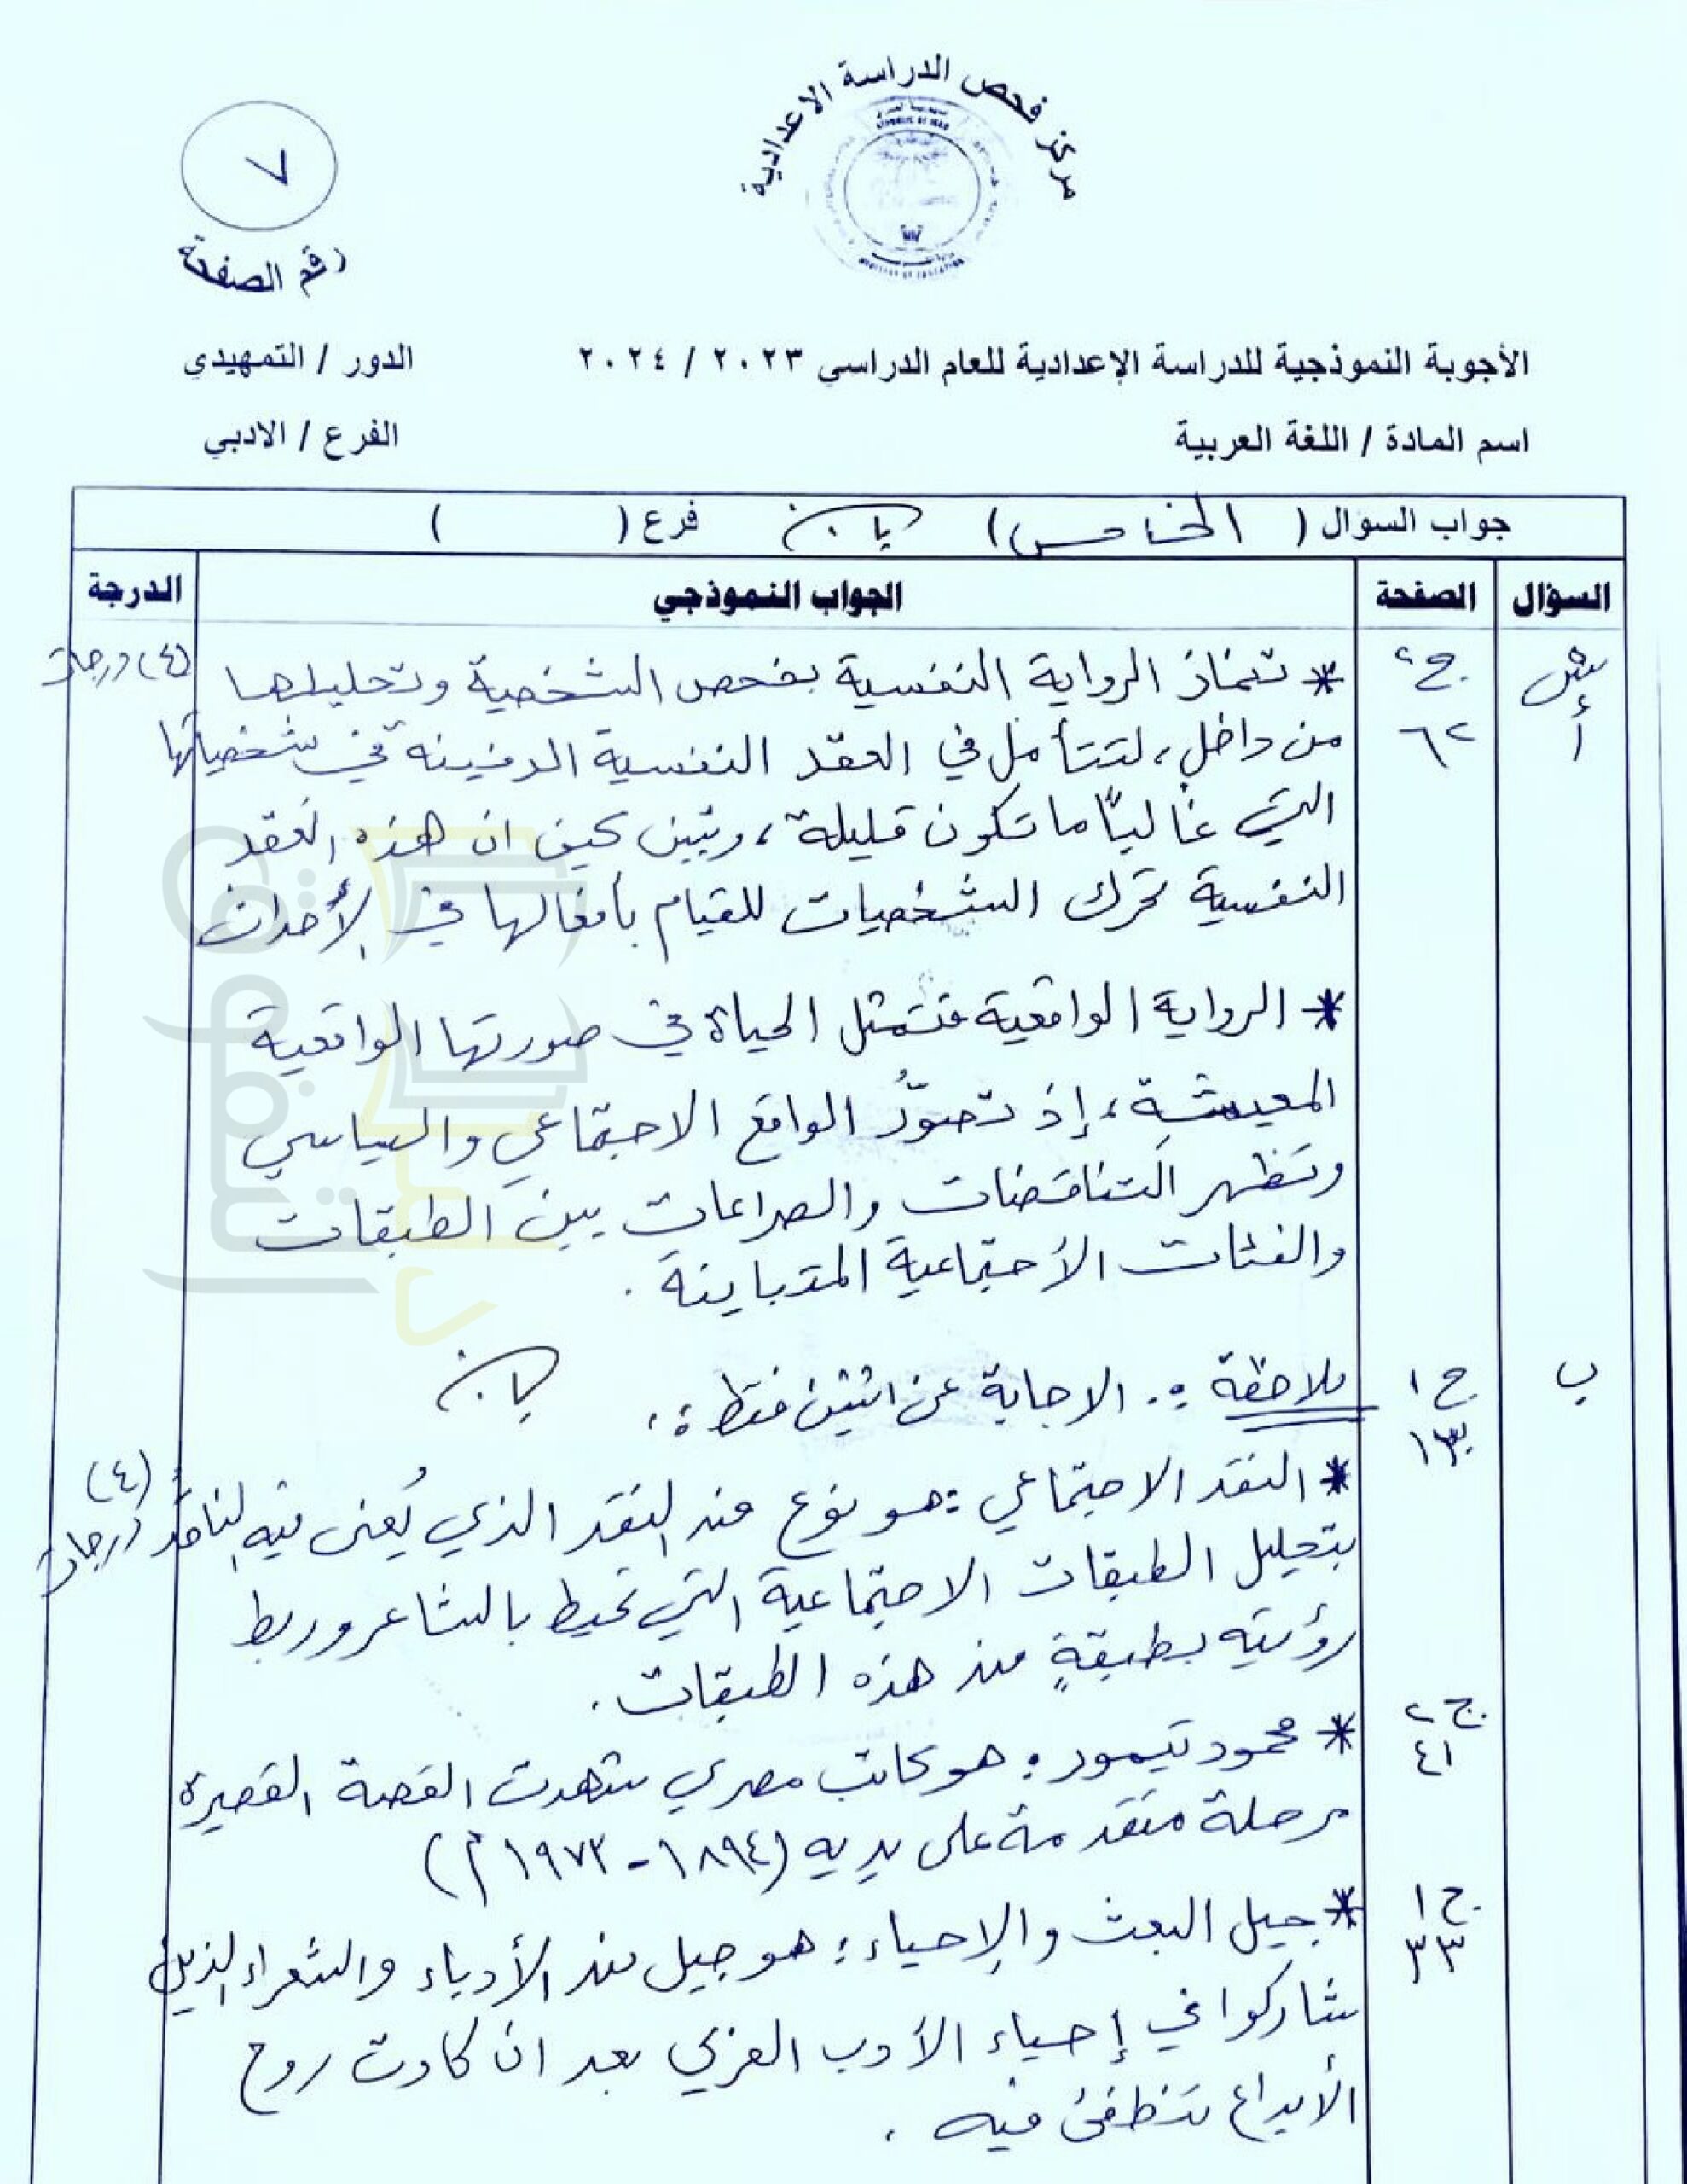 مركز فحص الدراسة الاعدادية
٧
رقم الصفحة
الأجوبة النموذجية للدراسة الإعدادية للعام الدراسي ٢٠٢٣ / ٢٠٢٤
الدور / التمهيدي
اسم المادة / اللغة العربية
الفرع / الادبي
جواب السؤال ( الخامس ) فرع ( )
السؤال الصفحة الجواب النموذجي الدرجة
* تمتاز الرواية النفسية بفحص الشخصية وتحليلها (٤) درجات
أ ٦٢ من داخل، لتتأمل في العقد النفسية الدفينة في شخصياتها
التي غالباً ما تكون قليلة، وتبين كيف ان هذه العقد
النفسية تحرك الشخصيات للقيام بأفعالها في الأحداث
* الرواية الواقعية فتمثل الحياة في صورتها الواقعية
المعيشة، إذ تصوّر الواقع الاجتماعي والسياسي
وتظهر التناقضات والصراعات بين الطبقات
والفئات الأجتماعية المتباينة .
ب ج ١ ملاحظة :. الاجابة عن اثنين فقط :.
١٣
* النقد الاجتماعي : هو نوع من النقد الذي يُعنى فيه الناقد (٤) درجات
بتحليل الطبقات الاجتماعية التي تحيط بالشاعر وربط
رؤيته بطبقةٍ من هذه الطبقات .
ج ٢ * محمود تيمور : هو كاتب مصري شهدت القصة القصيرة
٤١ مرحلة متقدمة على يديه (١٨٩٤ - ١٩٧٣ م)
ج ١ * جيل البعث والإحياء : هو جيل من الأدباء والشعراء الذين
٣٣ شاركوا في إحياء الأدب العربي بعد ان كادت روح
الأبداع تنطفئ فيه .
دار التفوق